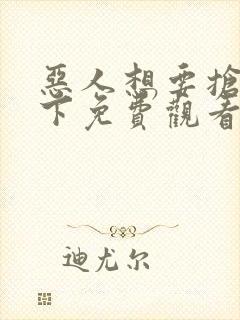 惡人想要搶
下免費觀看
迪尤尔